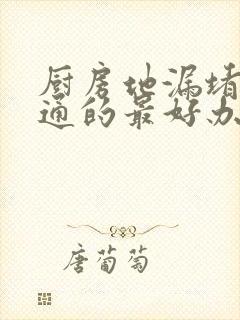 厨房地漏堵
通的最好办
唐葡萄